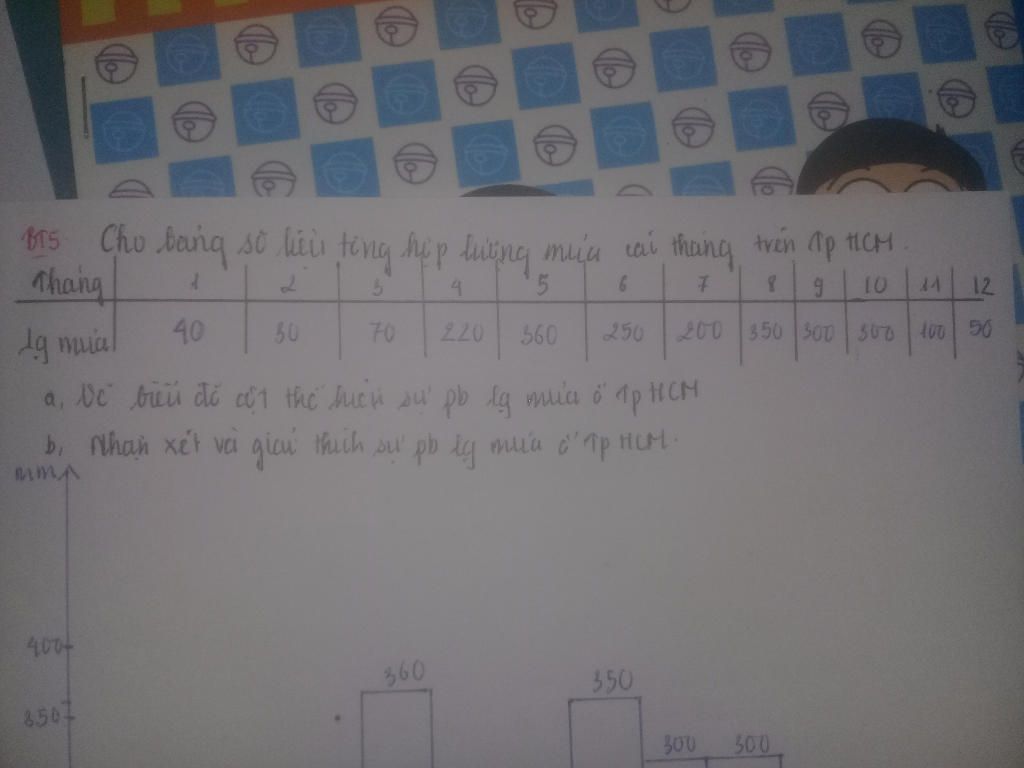 BT5. Cho bảng số liệu tổng hợp lượng mưa cái tháng trên Tp HCM.
Tháng 1 2 3 4 5 6 7 8 9 10 11 12
lg mưa 40 30 70 220 360 250 200 350 300 300 100 50
a, Vẽ biểu đồ cột thể hiện sự pb lg mưa ở Tp HCM
b, Nhận xét và giải thích sự pb lg mưa ở Tp HCM.
mm
400
360 350
350
300 300